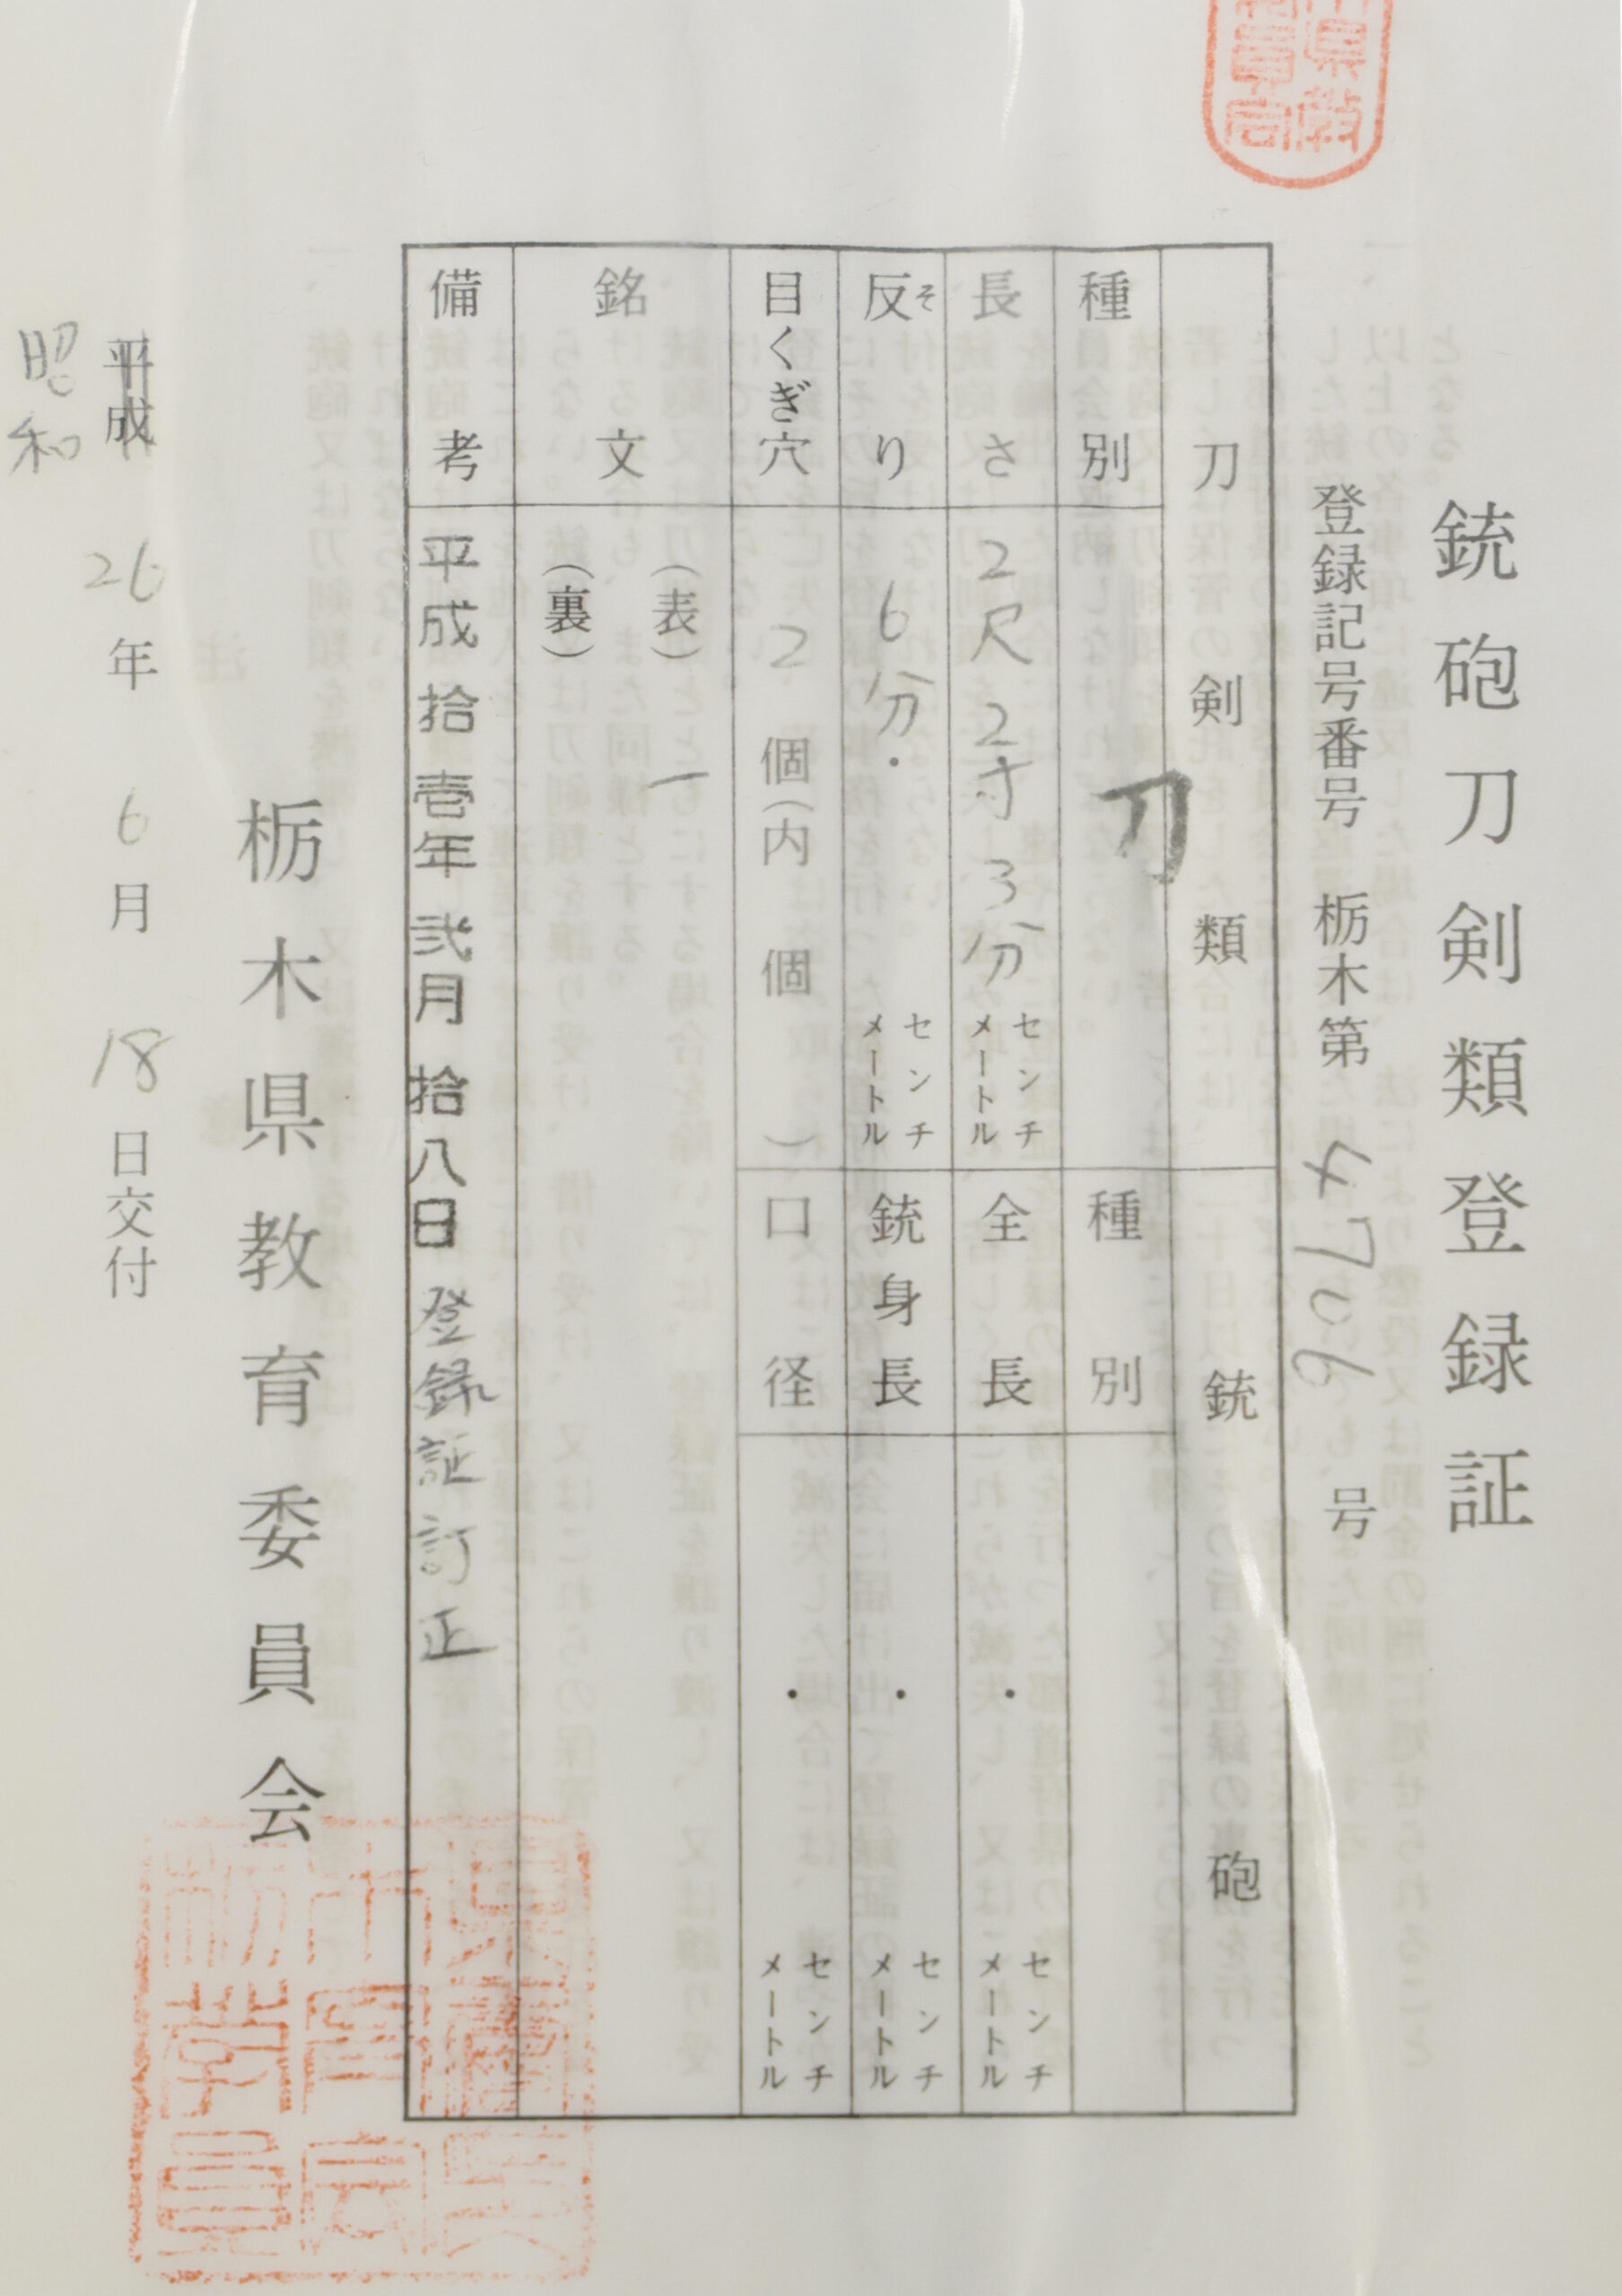 銃砲刀剣類登録証
登録記号番号 栃木第 4706 号
刀剣類
種別 刀
長さ 2尺2寸3分 センチメートル
反り 6分・ センチメートル
そ
目くぎ穴 2個(内 個)
銘文 (表) 一
(裏)
銃砲
種別
全長 ・ センチメートル
銃身長 ・ センチメートル
口径 ・ センチメートル
備考 平成拾壱年弐月拾八日登録証訂正
栃木県教育委員会
平成 26年 6月 18日交付
昭和